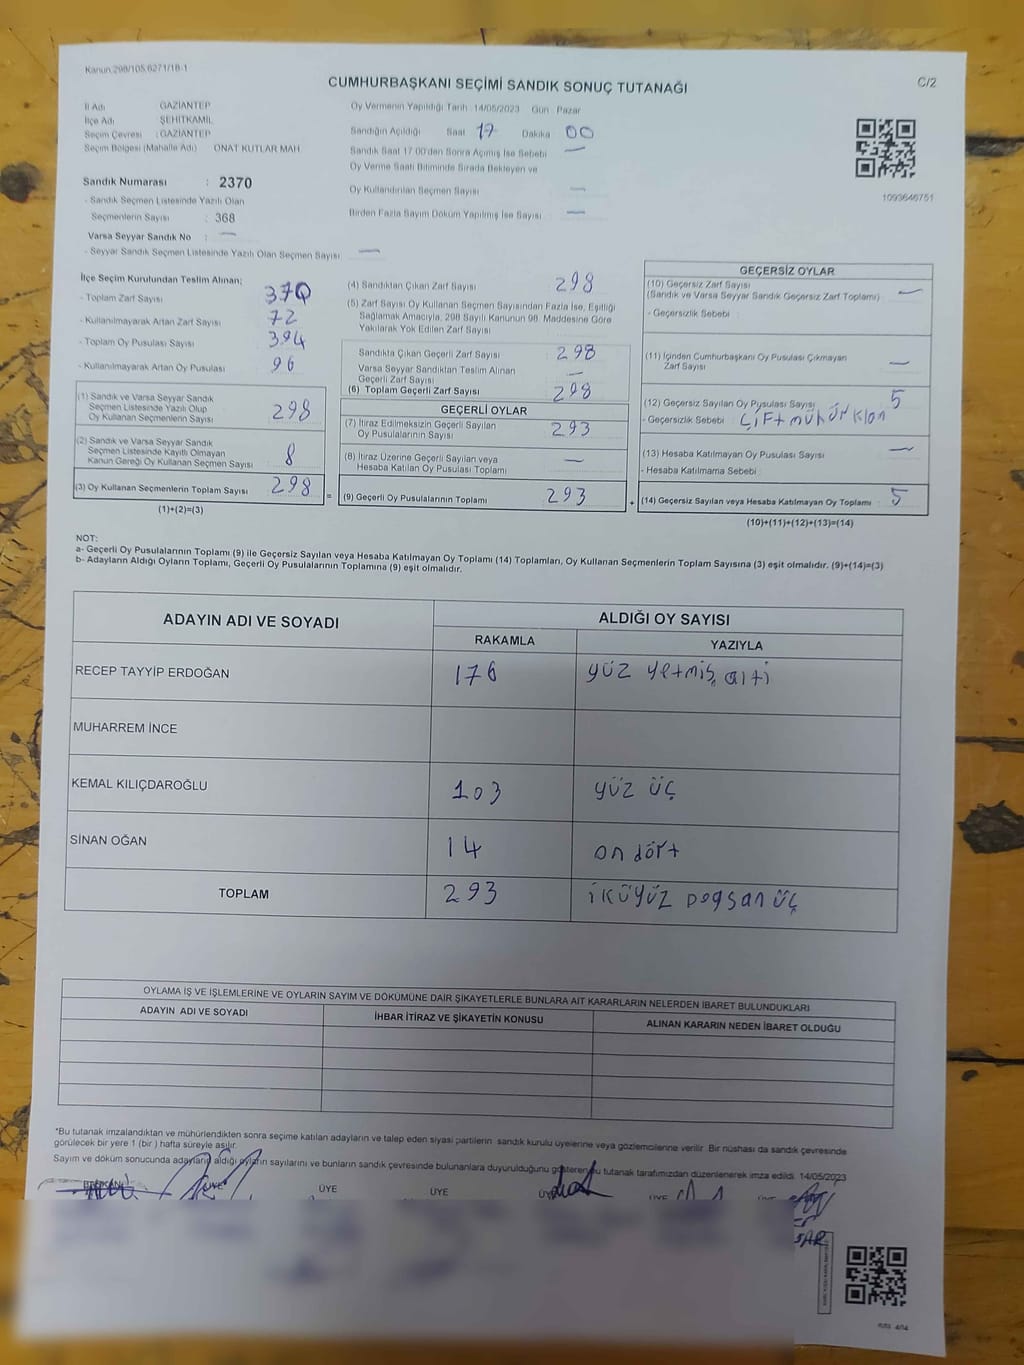 Kanun:298/105,6271/18-1
CUMHURBAŞKANI SEÇİMİ SANDIK SONUÇ TUTANAĞI
C/2
İl Adı GAZİANTEP
İlçe Adı ŞEHİTKAMİL
Seçim Çevresi : GAZİANTEP
Seçim Bölgesi (Mahalle Adı) ONAT KUTLAR MAH.
Sandık Numarası : 2370
- Sandık Seçmen Listesinde Yazılı Olan
Seçmenlerin Sayısı : 368
Varsa Seyyar Sandık No : —
- Seyyar Sandık Seçmen Listesinde Yazılı Olan Seçmen Sayısı —
Oy Vermenin Yapıldığı Tarih : 14/05/2023 Gün : Pazar
Sandığın Açıldığı Saat 17 Dakika 00
Sandık Saat 17.00'den Sonra Açılmış İse Sebebi —
Oy Verme Saati Bitiminde Sırada Bekleyen ve
Oy Kullandırılan Seçmen Sayısı —
Birden Fazla Sayım Döküm Yapılmış İse Sayısı —
1093646751
İlçe Seçim Kurulundan Teslim Alınan;
- Toplam Zarf Sayısı 370
- Kullanılmayarak Artan Zarf Sayısı 72
- Toplam Oy Pusulası Sayısı 394
- Kullanılmayarak Artan Oy Pusulası 96
(1) Sandık ve Varsa Seyyar Sandık
Seçmen Listesinde Yazılı Olup
Oy Kullanan Seçmenlerin Sayısı 298
(2) Sandık ve Varsa Seyyar Sandık
Seçmen Listesinde Kayıtlı Olmayan
Kanun Gereği Oy Kullanan Seçmen Sayısı 8
(3) Oy Kullanan Seçmenlerin Toplam Sayısı 298
(1)+(2)=(3)
(4) Sandıktan Çıkan Zarf Sayısı 298
(5) Zarf Sayısı Oy Kullanan Seçmen Sayısından Fazla İse, Eşitliği
Sağlamak Amacıyla, 298 Sayılı Kanunun 98. Maddesine Göre
Yakılarak Yok Edilen Zarf Sayısı
Sandıkta Çıkan Geçerli Zarf Sayısı 298
Varsa Seyyar Sandıktan Teslim Alınan —
Geçerli Zarf Sayısı
(6) Toplam Geçerli Zarf Sayısı 298
GEÇERLİ OYLAR
(7) İtiraz Edilmeksizin Geçerli Sayılan
Oy Pusulalarının Sayısı 293
(8) İtiraz Üzerine Geçerli Sayılan veya
Hesaba Katılan Oy Pusulası Toplamı —
= (9) Geçerli Oy Pusulalarının Toplamı 293
GEÇERSİZ OYLAR
(10) Geçersiz Zarf Sayısı
(Sandık ve Varsa Seyyar Sandık Geçersiz Zarf Toplamı) : —
- Geçersizlik Sebebi :
(11) İçinden Cumhurbaşkanı Oy Pusulası Çıkmayan
Zarf Sayısı —
(12) Geçersiz Sayılan Oy Pusulası Sayısı 5
- Geçersizlik Sebebi
(13) Hesaba Katılmayan Oy Pusulası Sayısı —
- Hesaba Katılmama Sebebi :
+ (14) Geçersiz Sayılan veya Hesaba Katılmayan Oy Toplamı : 5
(10)+(11)+(12)+(13)=(14)
NOT:
a- Geçerli Oy Pusulalarının Toplamı (9) ile Geçersiz Sayılan veya Hesaba Katılmayan Oy Toplamı (14) Toplamları, Oy Kullanan Seçmenlerin Toplam Sayısına (3) eşit olmalıdır. (9)+(14)=(3)
b- Adayların Aldığı Oyların Toplamı, Geçerli Oy Pusulalarının Toplamına (9) eşit olmalıdır.
ADAYIN ADI VE SOYADI ALDIĞI OY SAYISI
RAKAMLA YAZIYLA
RECEP TAYYİP ERDOĞAN 176 yüz yetmiş altı
MUHARREM İNCE
KEMAL KILIÇDAROĞLU 103 yüz üç
SİNAN OĞAN 14 on dört
TOPLAM 293 iküyüz dogsan üç
OYLAMA İŞ VE İŞLEMLERİNE VE OYLARIN SAYIM VE DÖKÜMÜNE DAİR ŞİKAYETLERLE BUNLARA AİT KARARLARIN NELERDEN İBARET BULUNDUKLARI
ADAYIN ADI VE SOYADI İHBAR İTİRAZ VE ŞİKAYETİN KONUSU ALINAN KARARIN NEDEN İBARET OLDUĞU
*Bu tutanak imzalandıktan ve mühürlendikten sonra seçime katılan adayların ve talep eden siyasi partilerin sandık kurulu üyelerine veya gözlemcilerine verilir. Bir nüshası da sandık çevresinde
görülecek bir yere 1 (bir) hafta süreyle asılır.
Sayım ve döküm sonucunda adayların aldığı oyların sayılarını ve bunların sandık çevresinde bulunanlara duyurulduğunu gösteren bu tutanak tarafımızdan düzenlenerek imza edildi. 14/05/2023
BAŞKAN ÜYE ÜYE ÜYE ÜYE ÜYE ÜYE